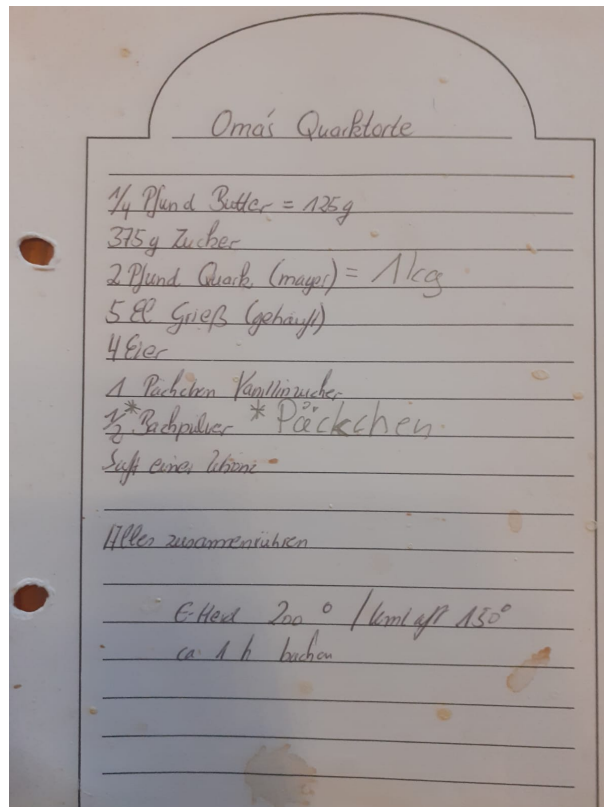 Oma's Quarktorte
1/4 Pfund Butter = 125g
375g Zucker
2 Pfund Quark (mager) = 1kg
5 El Grieß (gehäuft)
4 Eier
1 Päckchen Vanillinzucker
1/2 * Backpulver * Päckchen.
Saft einer Zitrone
Alles zusammenrühren
E-Herd 200° / Umluft 150°
ca. 1 h backen